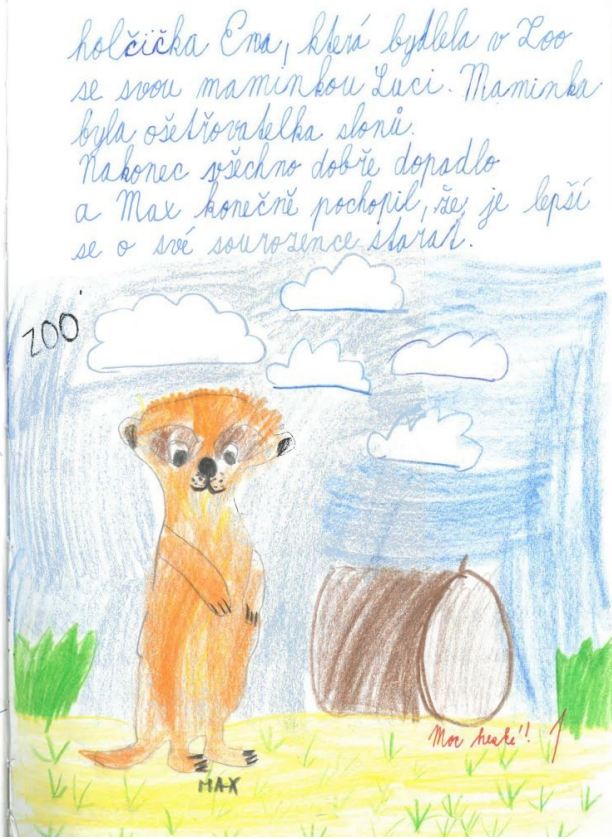 holčička Ema, která bydlela v Zoo
se svou maminkou Luci. Maminka
byla ošetřovatelka slonů.
Nakonec všechno dobře dopadlo
a Max konečně pochopil, že je lepší
se o své sourozence starat.
ZOO
Moc hezké!! 1
MAX